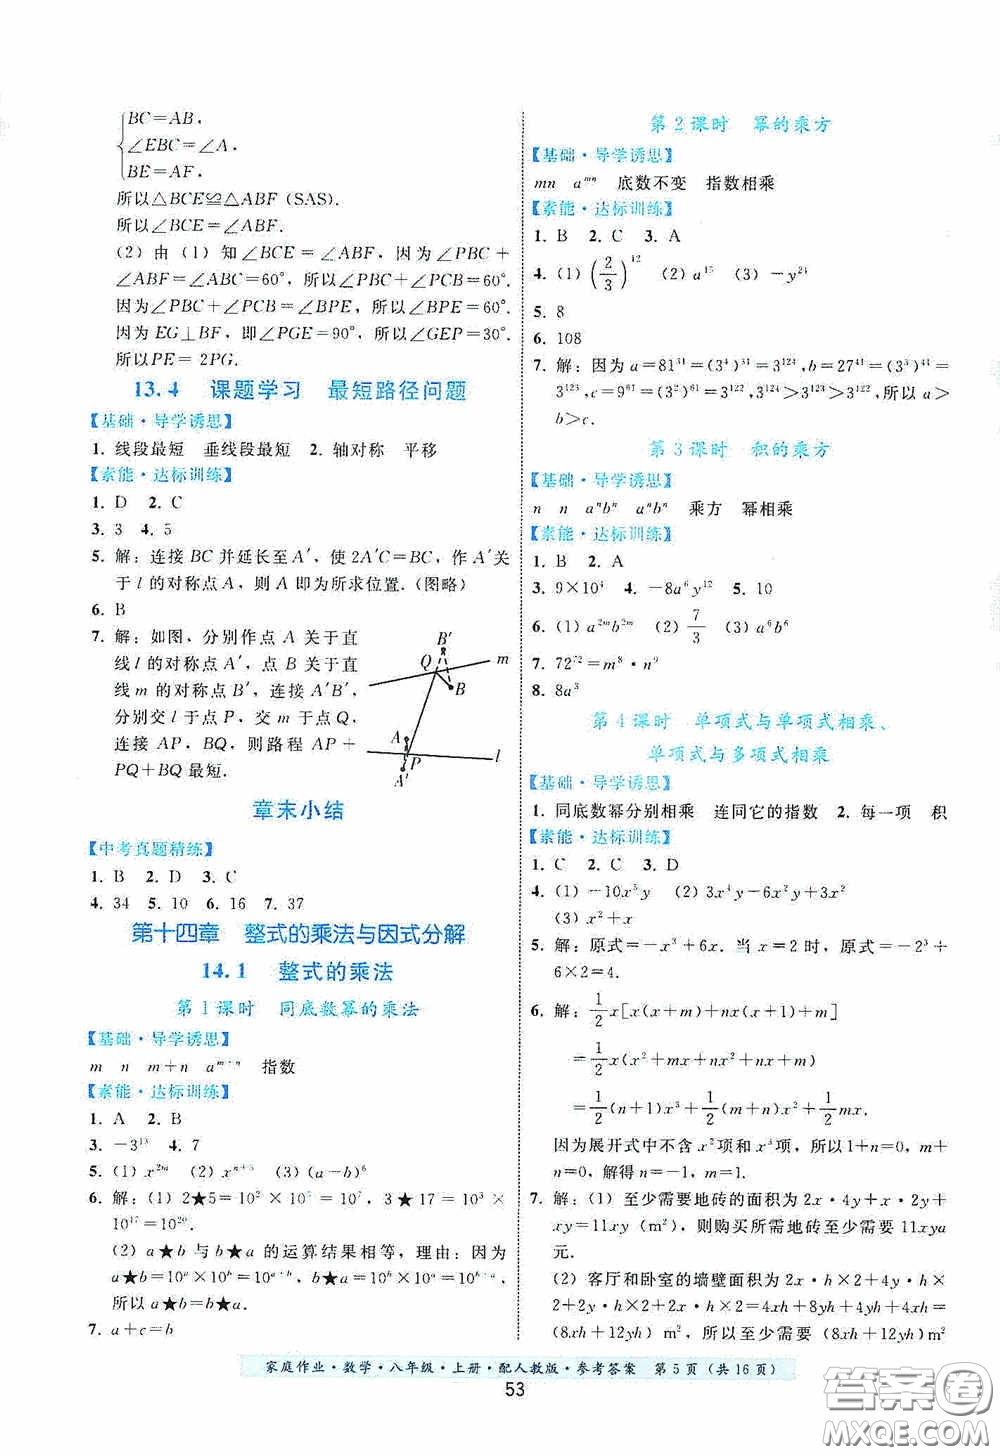 BC=AB,
∠EBC=∠A,
BE=AF,
所以△BCE≌△ABF (SAS).
所以∠BCE=∠ABF.
(2) 由 (1) 知∠BCE=∠ABF, 因为∠PBC+
∠ABF=∠ABC=60°, 所以∠PBC+∠PCB=60°.
因为∠PBC+∠PCB=∠BPE, 所以∠BPE=60°.
因为 EG⊥BF, 即∠PGE=90°, 所以∠GEP=30°.
所以PE= 2PG.
13.4 课题学习 最短路径问题
【基础·导学诱思】
1. 线段最短 垂线段最短 2. 轴对称 平移
【素能·达标训练】
1. D 2. C
3. 3 4. 5
5. 解: 连接 BC 并延长至 A′, 使 2A′C=BC, 作 A′关
于 l 的对称点 A, 则 A 即为所求位置. (图略)
6. B
7. 解: 如图, 分别作点 A 关于直
线 l 的对称点 A′, 点 B 关于直
线 m 的对称点 B′, 连接 A′B′,
分别交 l 于点 P, 交 m 于点 Q,
连接 AP, BQ, 则路程 AP+
PQ+BQ 最短.
B′
Q
m
B
A
P
l
A′
章末小结
【中考真题精练】
1. B 2. D 3. C
4. 34 5. 10 6. 16 7. 37
第十四章 整式的乘法与因式分解
14.1 整式的乘法
第 1 课时 同底数幂的乘法
【基础·导学诱思】
m n m+n a^{m+n} 指数
【素能·达标训练】
1. A 2. B
3. −3^{13} 4. 7
5. (1) x^{2m} (2) x^{n+5} (3) (a−b)^6
6. 解: (1) 2★5=10^2×10^5=10^7, 3★17=10^3×
10^{17}=10^{20}.
(2) a★b 与 b★a 的运算结果相等, 理由: 因为
a★b=10^a×10^b=10^{a+b}, b★a=10^b×10^a=10^{b+a},
所以 a★b=b★a.
7. a+c=b
第 2 课时 幂的乘方
【基础·导学诱思】
mn a^{mn} 底数不变 指数相乘
【素能·达标训练】
1. B 2. C 3. A
4. (1) (2/3)^{12} (2) a^{15} (3) −y^{24}
5. 8
6. 108
7. 解: 因为 a=81^{31}=(3^4)^{31}=3^{124}, b=27^{41}=(3^3)^{41}=
3^{123}, c=9^{61}=(3^2)^{61}=3^{122}, 3^{124}>3^{123}>3^{122}, 所以 a>
b>c.
第 3 课时 积的乘方
【基础·导学诱思】
n n a^n b^n a^n b^n 乘方 幂相乘
【素能·达标训练】
1. B 2. A
3. 9×10^4 4. −8a^6y^{12} 5. 10
6. (1) a^{2m}b^{2m} (2) 7/3 (3) a^6b^6
7. 72^{72}=m^8·n^9
8. 8a^3
第 4 课时 单项式与单项式相乘、
单项式与多项式相乘
【基础·导学诱思】
1. 同底数幂分别相乘 连同它的指数 2. 每一项 积
【素能·达标训练】
1. C 2. C 3. D
4. (1) −10x^5y (2) 3x^4y−6x^2y+3x^2
(3) x^2
5. 解: 原式=−x^3+6x. 当 x=2 时, 原式=−2^3+
6×2=4.
6. 解: 1/2 x[x(x+m)+nx(x+1)+m]
=1/2 x(x^2+mx+nx^2+nx+m)
=1/2 (n+1)x^3+1/2 (m+n)x^2+1/2 mx.
因为展开式中不含 x^2项和 x^3项, 所以 1+n=0, m+
n=0, 解得 n=−1, m=1.
7. 解: (1) 至少需要地砖的面积为 2x·4y+x·2y+
xy=11xy (m^2), 则购买所需地砖至少需要 11xya
元.
(2) 客厅和卧室的墙壁面积为 2x·h×2+4y·h
×2+2x·h×2+2y·h×2=4xh+8yh+4xh+4yh=
(8xh+12yh) (m^2), 则至少需要壁纸 (8xh+12yh)
家庭作业·数学·八年级·上册·配人教版·参考答案 第 5 页 (共 16 页)
53
答案卷
MXQE.COM